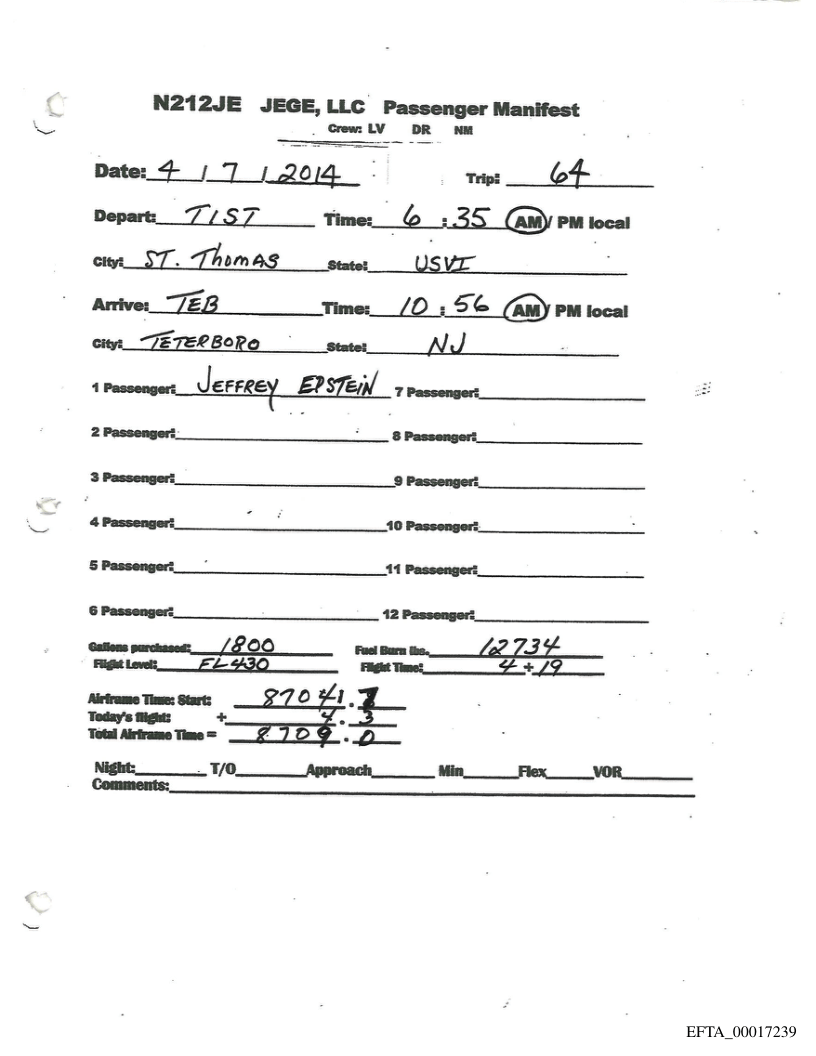 N212JE JEGE, LLC Passenger Manifest
Crew: LV DR NM
Date: 4 / 7 / 2014 Trip: 64
Depart: TIST Time: 6 : 35 AM/ PM local
City: ST. Thomas State: USVI
Arrive: TEB Time: 10 : 56 AM/ PM local
City: TETERBORO State: NJ
1 Passenger: JEFFREY EPSTEIN 7 Passenger:
2 Passenger: 8 Passenger:
3 Passenger: 9 Passenger:
4 Passenger: 10 Passenger:
5 Passenger: 11 Passenger:
6 Passenger: 12 Passenger:
Gallons purchased: 1800 Fuel Burn lbs. 12734
Flight Level: FL430 Flight Time: 4 + 19
Airframe Time: Start:
Today's flight: + 4.3
Total Airframe Time = 8709.0
Night: T/O Approach Min Flex VOR
Comments:
EFTA_00017239